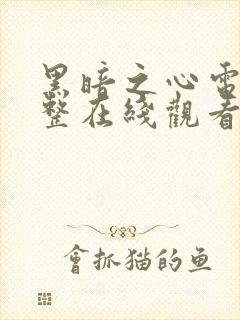 黑暗之心電
整在綫觀看
會抓猫的鱼